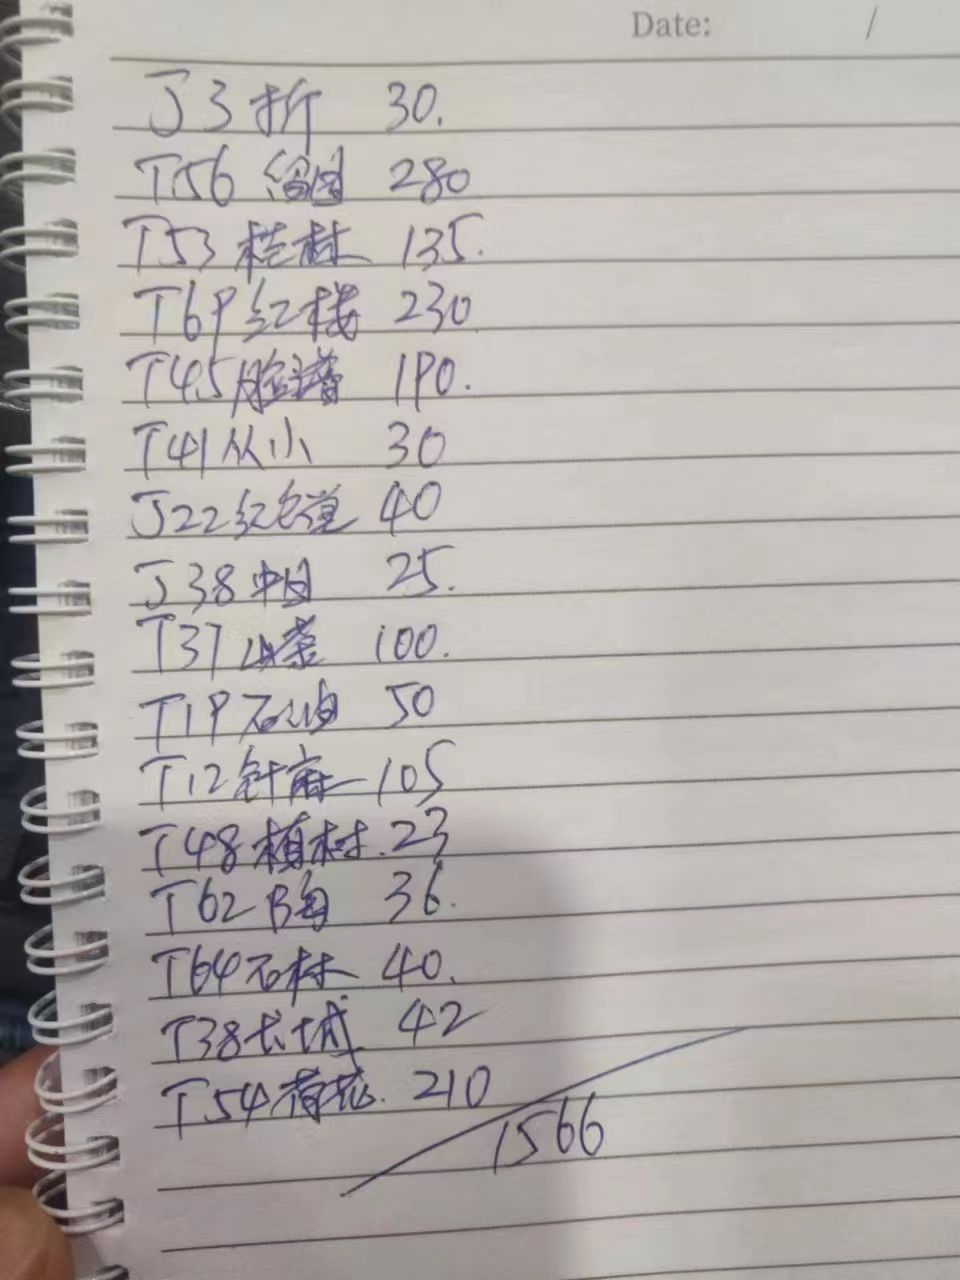 Date: /
J3折 30.
T56 留园 280
T53 桂林 135.
T69红楼 230
T45脸谱 190.
T41从小 30
J22红色道 40
J38中日 25.
T37山茶 100.
T19石油 50
T12针麻 105
T48植树. 23
T62 36.
T64石林 40.
T38长城 42
T54荷花. 210
1566